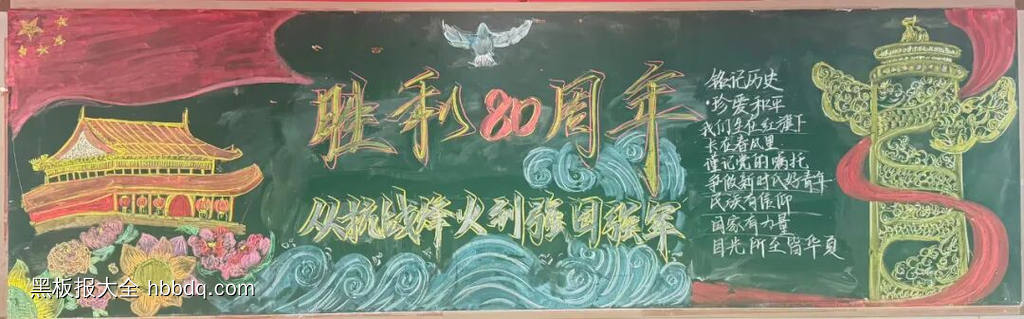 胜利80周年
从抗战烽火到强国强军
铭记历史
·珍爱和平
我们生在红旗下
长在春风里
谨记党的嘱托
争做新时代好青年
民族有信仰
国家有力量
目光所至皆华夏
黑板报大全 hbbdq.com